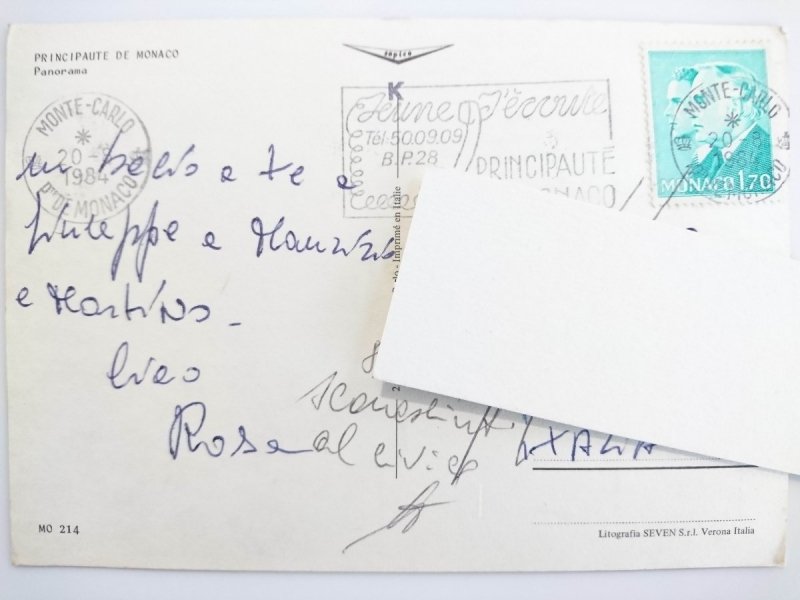 PRINCIPAUTE DE MONACO
Panorama
MONTE-CARLO
20
1984
PTE DE MONACO
K
Jeune J'écoute
Tél. 50.09.09
B.P. 28
PRINCIPAUTÉ
MONACO
MONTE-CARLO
20
1984
MONACO 1,70
un bacio a te a
Giuseppe a Maurizio
e Martino -
Ciao
Rosa
Imprimé en Italie
sconosciuto
al civico
ITALIA
MO 214
Litografia SEVEN S.r.l. Verona Italia